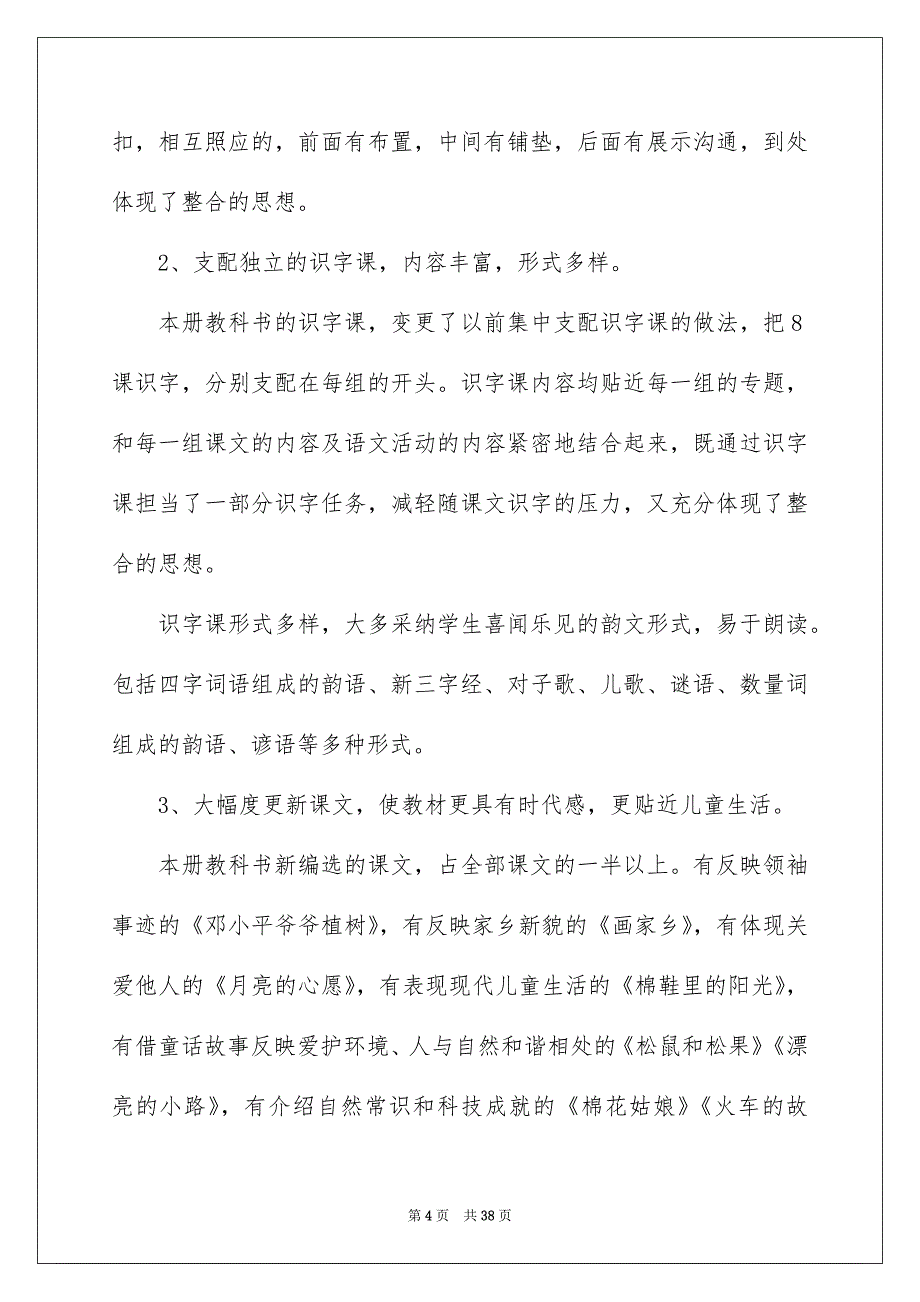 扣，相互照应的，前面有布置，中间有铺垫，后面有展示沟通，到处
体现了整合的思想。
2、支配独立的识字课，内容丰富，形式多样。
本册教科书的识字课，变更了以前集中支配识字课的做法，把 8
课识字，分别支配在每组的开头。识字课内容均贴近每一组的专题，
和每一组课文的内容及语文活动的内容紧密地结合起来，既通过识字
课担当了一部分识字任务，减轻随课文识字的压力，又充分体现了整
合的思想。
识字课形式多样，大多采纳学生喜闻乐见的韵文形式，易于朗读。
包括四字词语组成的韵语、新三字经、对子歌、儿歌、谜语、数量词
组成的韵语、谚语等多种形式。
3、大幅度更新课文，使教材更具有时代感，更贴近儿童生活。
本册教科书新编选的课文，占全部课文的一半以上。有反映领袖
事迹的《邓小平爷爷植树》，有反映家乡新貌的《画家乡》，有体现关
爱他人的《月亮的心愿》，有表现现代儿童生活的《棉鞋里的阳光》，
有借童话故事反映爱护环境、人与自然和谐相处的《松鼠和松果》《漂
亮的小路》，有介绍自然常识和科技成就的《棉花姑娘》《火车的故
第 4 页 共 38 页